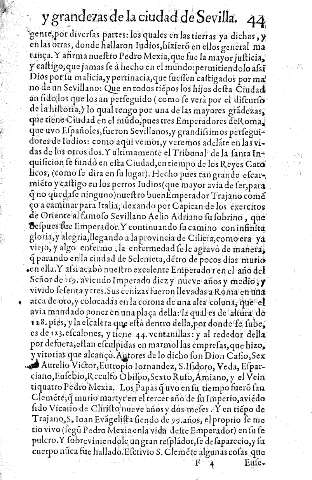 y grandezas de la ciudad de Sevilla. 44
gente, por diversas partes: los quales en las tierras ya dichas, y
en las otras, donde hallaron Iudios, hizierõ en ellos general ma
tança. Y afirma nuestro Pedro Mexia, que fue la mayor justicia,
y castigo, que jamas se â hecho en el mundo: permitiendolo assi
Dios por su malicia, y pertinacia, que fuessen castigados por ma
no de un Sevillano: Que en todos tiẽpos los hijos desta Ciudad
an sido los que los an perseguido (como se verà por el discurso
de la historia,) lo qual tengo por una de las mayores grãdezas,
que tiene Ciudad en el mũdo, pues tres Emperadores de Roma,
que uvo Españoles, fueron Sevillanos, y grandissimos persegui-
dores de Iudios: como aqui vemos, y veremos adelãte en las vi-
das de los otros dos. Y ultimamente el Tribunal de la santa In-
quisicion se fundó en esta Ciudad, en tiempo de los Reyes Cato
licos, (como se dira en su lugar). Hecho pues tan grande escar-
miẽto y castigo en los perros Iudios (que mayor avia de ser, para
q̃ no quedasse ninguno) nuestro buen Emperador Trajano comẽ
çò a caminar para Italia, dexando por Capitan de los exercitos
de Oriente al famoso Sevillano Aelio Adriano su sobrino, que
despues fue Emperador. Y continuando su camino con infinita
gloria, y alegria, llegando a la provincia de Cilicia, como era ya
viejo, y algo enfermo, la enfermedad se le agravó de manera,
q̃ parando en la ciudad de Seleucia, dẽtro de pocos dias murio
en ella. Y assi acabó nuestro excelente Emperador en el año del
Señor de 119. aviendo Imperado diez y nueve años y medio, y
vivido sesenta y tres. Sus cenizas fueron llevadas a Roma en una
arca de oro, y colocadas en la corona de una alta coluna, que el
avia mandado poner en una plaça della: la qual es de altura dè
128. piés, y la escalera que està dentro della, por donde se sube,
es de 123. escalones, y tiene 44. ventanillas: y al rededor della
por defuera, estan esculpidas en marmol las empresas, que hizo,
y vitorias que alcançò. Autores de lo dicho son Dion Casio, Sex
to Aurelio Victor, Eutropio Iornandez, S. Isidoro, Veda, Espar-
ciano, Eusebio, Riculfo Obispo, Sexto Rufo, Amiano, y el Vein
tiquatro Pedro Mexia. Los Papas q̃ uvo en su tiempo fuerõ san
Clemẽte, q̃ murio martyr en el tercer año de su Imperio, aviẽdo
sido Vicario de Christo nueve años y dos meses. Y en tiẽpo de
Trajano, S. Ioan Evãgelista siendo de 99. años, el proprio se me
tio vivo (segũ Pedro Mexia en la vida deste Emperador) en su se
pulcro. Y sobreviniendole un gran resplãdor, se desaparecio, y su
cuerpo nũca fue hallado. Escrivio S. Clemẽte algunas cosas, que
F 4 Euse-